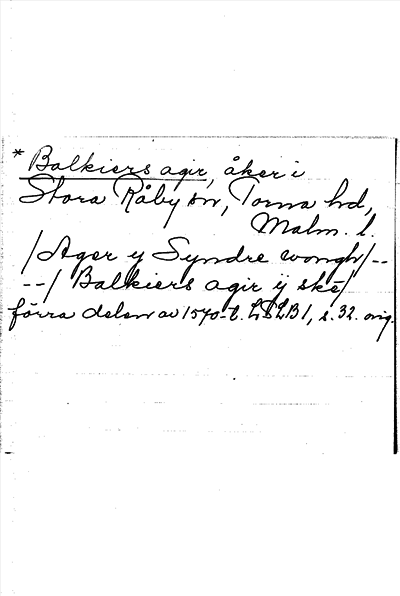 * Balkiers agir, åker i
Stora Råby sn, Torna hd,
Malm. l.
/Ager y Syndre wongh/--
--/ Balkiers agir ij ske/
förra delen av 1570-t. LSLB1, s. 32. orig.